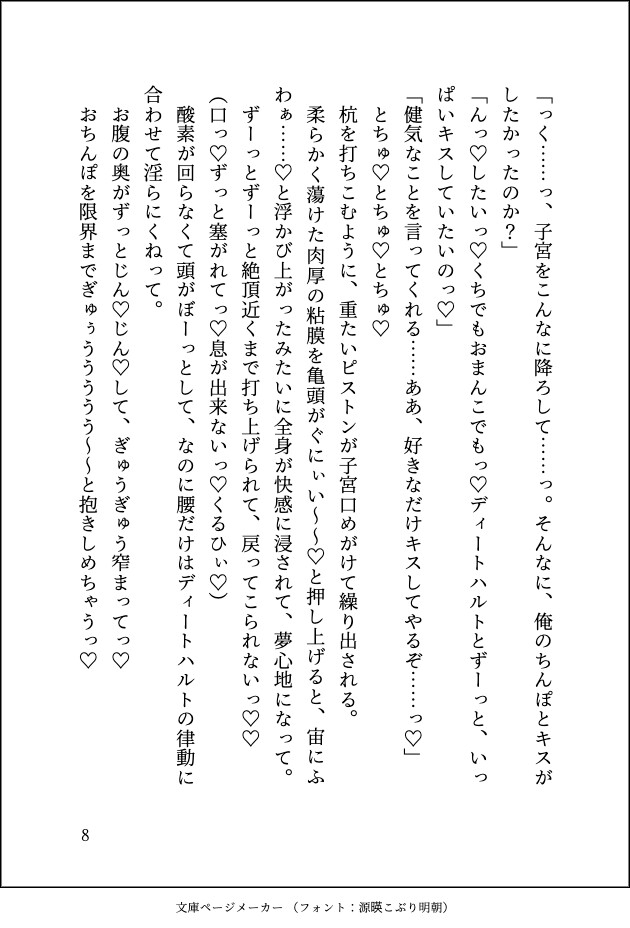 「っく……っ、子宮をこんなに降ろして……っ。そんなに、俺のちんぽとキスが
したかったのか？」
「んっ♡したいっ♡くちでもおまんこでもっ♡ディートハルトとずーっと、いっ
ぱいキスしていたいのっ♡」
「健気なことを言ってくれる……ああ、好きなだけキスしてやるぞ……っ♡」
とちゅ♡とちゅ♡とちゅ♡
杭を打ちこむように、重たいピストンが子宮口めがけて繰り出される。
柔らかく蕩けた肉厚の粘膜を亀頭がぐにぃい〜〜♡と押し上げると、宙にふ
わぁ……♡と浮かび上がったみたいに全身が快感に浸されて、夢心地になって。
ずーっとずーっと絶頂近くまで打ち上げられて、戻ってこられないっ♡♡
(口っ♡ずっと塞がれてっ♡息が出来ないっ♡くるひぃ♡)
酸素が回らなくて頭がぼーっとして、なのに腰だけはディートハルトの律動に
合わせて淫らにくねって。
お腹の奥がずっとじん♡じん♡して、ぎゅうぎゅう窄まってっ♡
おちんぽを限界までぎゅぅううううう〜〜と抱きしめちゃうっ♡
8
文庫ページメーカー （フォント：源暎こぶり明朝）